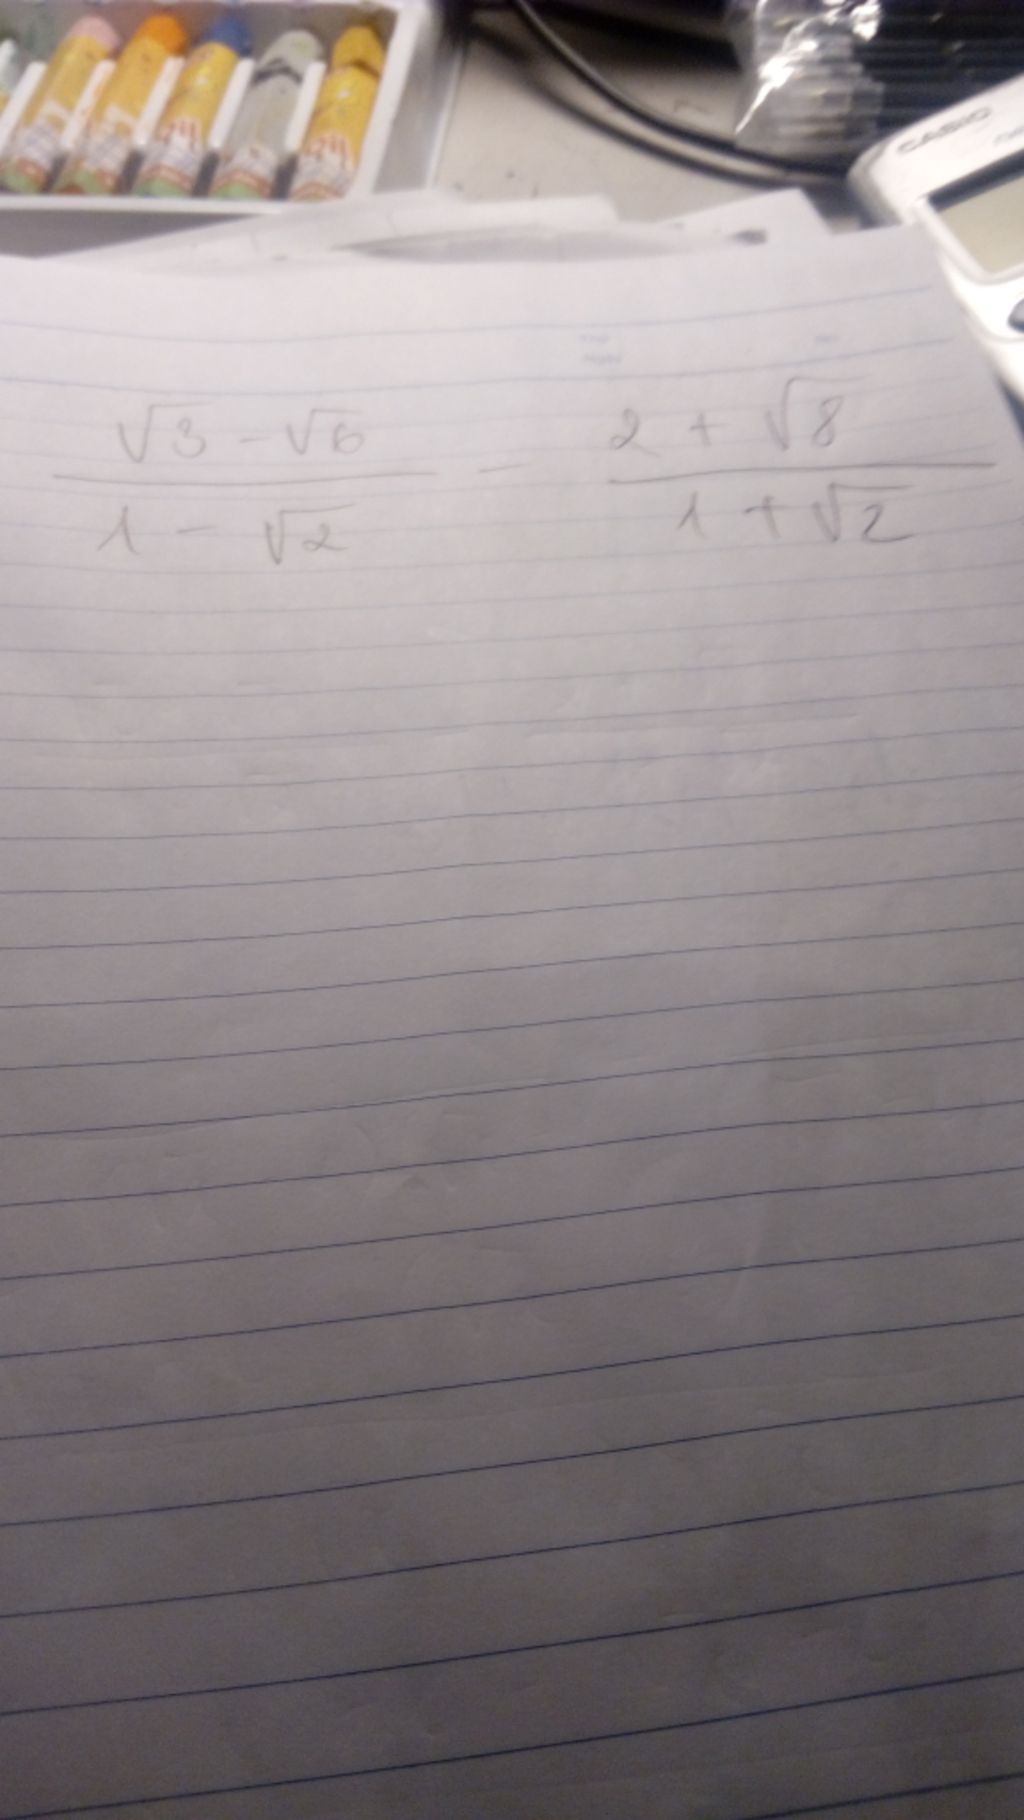 √3 - √6 / 1 - √2 - 2 + √8 / 1 + √2
CASIO